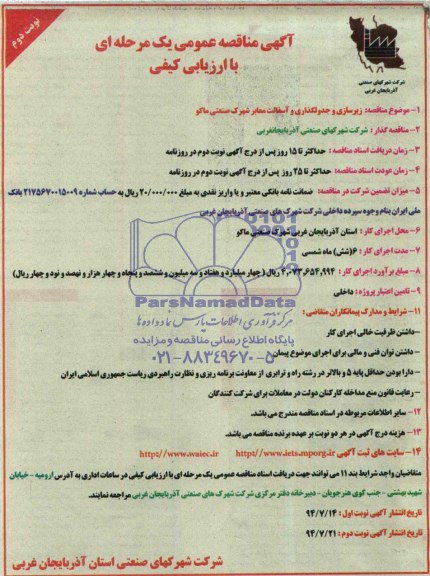 نوبت دوم
آگهی مناقصه عمومی یک مرحله ای
با ارزیابی کیفی
شرکت شهرکهای صنعتی
آذربایجان غربی
۱- موضوع مناقصه: زیرسازی و جدولگذاری و آسفالت معابر شهرک صنعتی ماکو
۲- مناقصه گذار: شرکت شهرکهای صنعتی آذربایجانغربی
۳- زمان دریافت اسناد مناقصه: حداکثر تا ۱۵ روز پس از درج آگهی نوبت دوم در روزنامه
۴- زمان عودت اسناد مناقصه: حداکثر تا ۲۵ روز پس از درج آگهی نوبت دوم در روزنامه
۵- میزان تضمین شرکت در مناقصه: ضمانت نامه بانکی معتبر و یا واریز نقدی به مبلغ ۲۰۰/۰۰۰/۰۰۰ ریال به حساب شماره ۲۱۷۵۶۷۰۰۱۵۰۰۹ بانک
ملی ایران بنام وجوه سپرده داخلی شرکت شهرک های صنعتی آذربایجان غربی
۶- محل اجرای کار: استان آذربایجان غربی شهرک صنعتی ماکو
۷- مدت اجرای کار: ۶(شش) ماه شمسی
۸- مبلغ برآورد اجرای کار: ۴،۰۷۳،۶۵۴،۹۹۴ ریال (چهار میلیارد و هفتاد و سه میلیون و ششصد و پنجاه و چهار هزار و نهصد و نود و چهار ریال)
۹- تامین اعتبار پروژه: داخلی
۱۱- شرایط و مدارک پیمانکاران متقاضی:
-داشتن ظرفیت خالی اجرای کار
-داشتن توان فنی و مالی برای اجرای موضوع پیمان
-دارا بودن حداقل پایه ۵ و بالاتر در رشته راه و ترابری از معاونت برنامه ریزی و نظارت راهبردی ریاست جمهوری اسلامی ایران
-رعایت قانون منع مداخله کارکنان دولت در معاملات برای شرکت کنندگان
۱۲- سایر اطلاعات مربوطه در اسناد مناقصه مندرج می باشد.
۱۳- هزینه درج آگهی در هر دو نوبت بر عهده برنده مناقصه می باشد.
۱۴- سایت های ثبت آگهی http://www.iets.mporg.ir http://www.waiec.ir
متقاضیان واجد شرایط بند ۱۱ می توانند جهت دریافت اسناد مناقصه عمومی یک مرحله ای با ارزیابی کیفی در ساعات اداری به آدرس ارومیه - خیابان
شهید بهشتی - جنب کوی هنرجویان - دبیرخانه دفتر مرکزی شرکت شهرک های صنعتی آذربایجان غربی مراجعه نمایند.
تاریخ انتشار آگهی نوبت اول: ۹۴/۷/۱۴
تاریخ انتشار آگهی نوبت دوم: ۹۴/۷/۲۱
شرکت شهرکهای صنعتی استان آذربایجان غربی
ParsNamadData
مرکز فرآوری اطلاعات پارس نماد داده ها
پایگاه اطلاع رسانی مناقصه و مزایده
۰۲۱-۸۸۳۴۹۶۷۰-۵